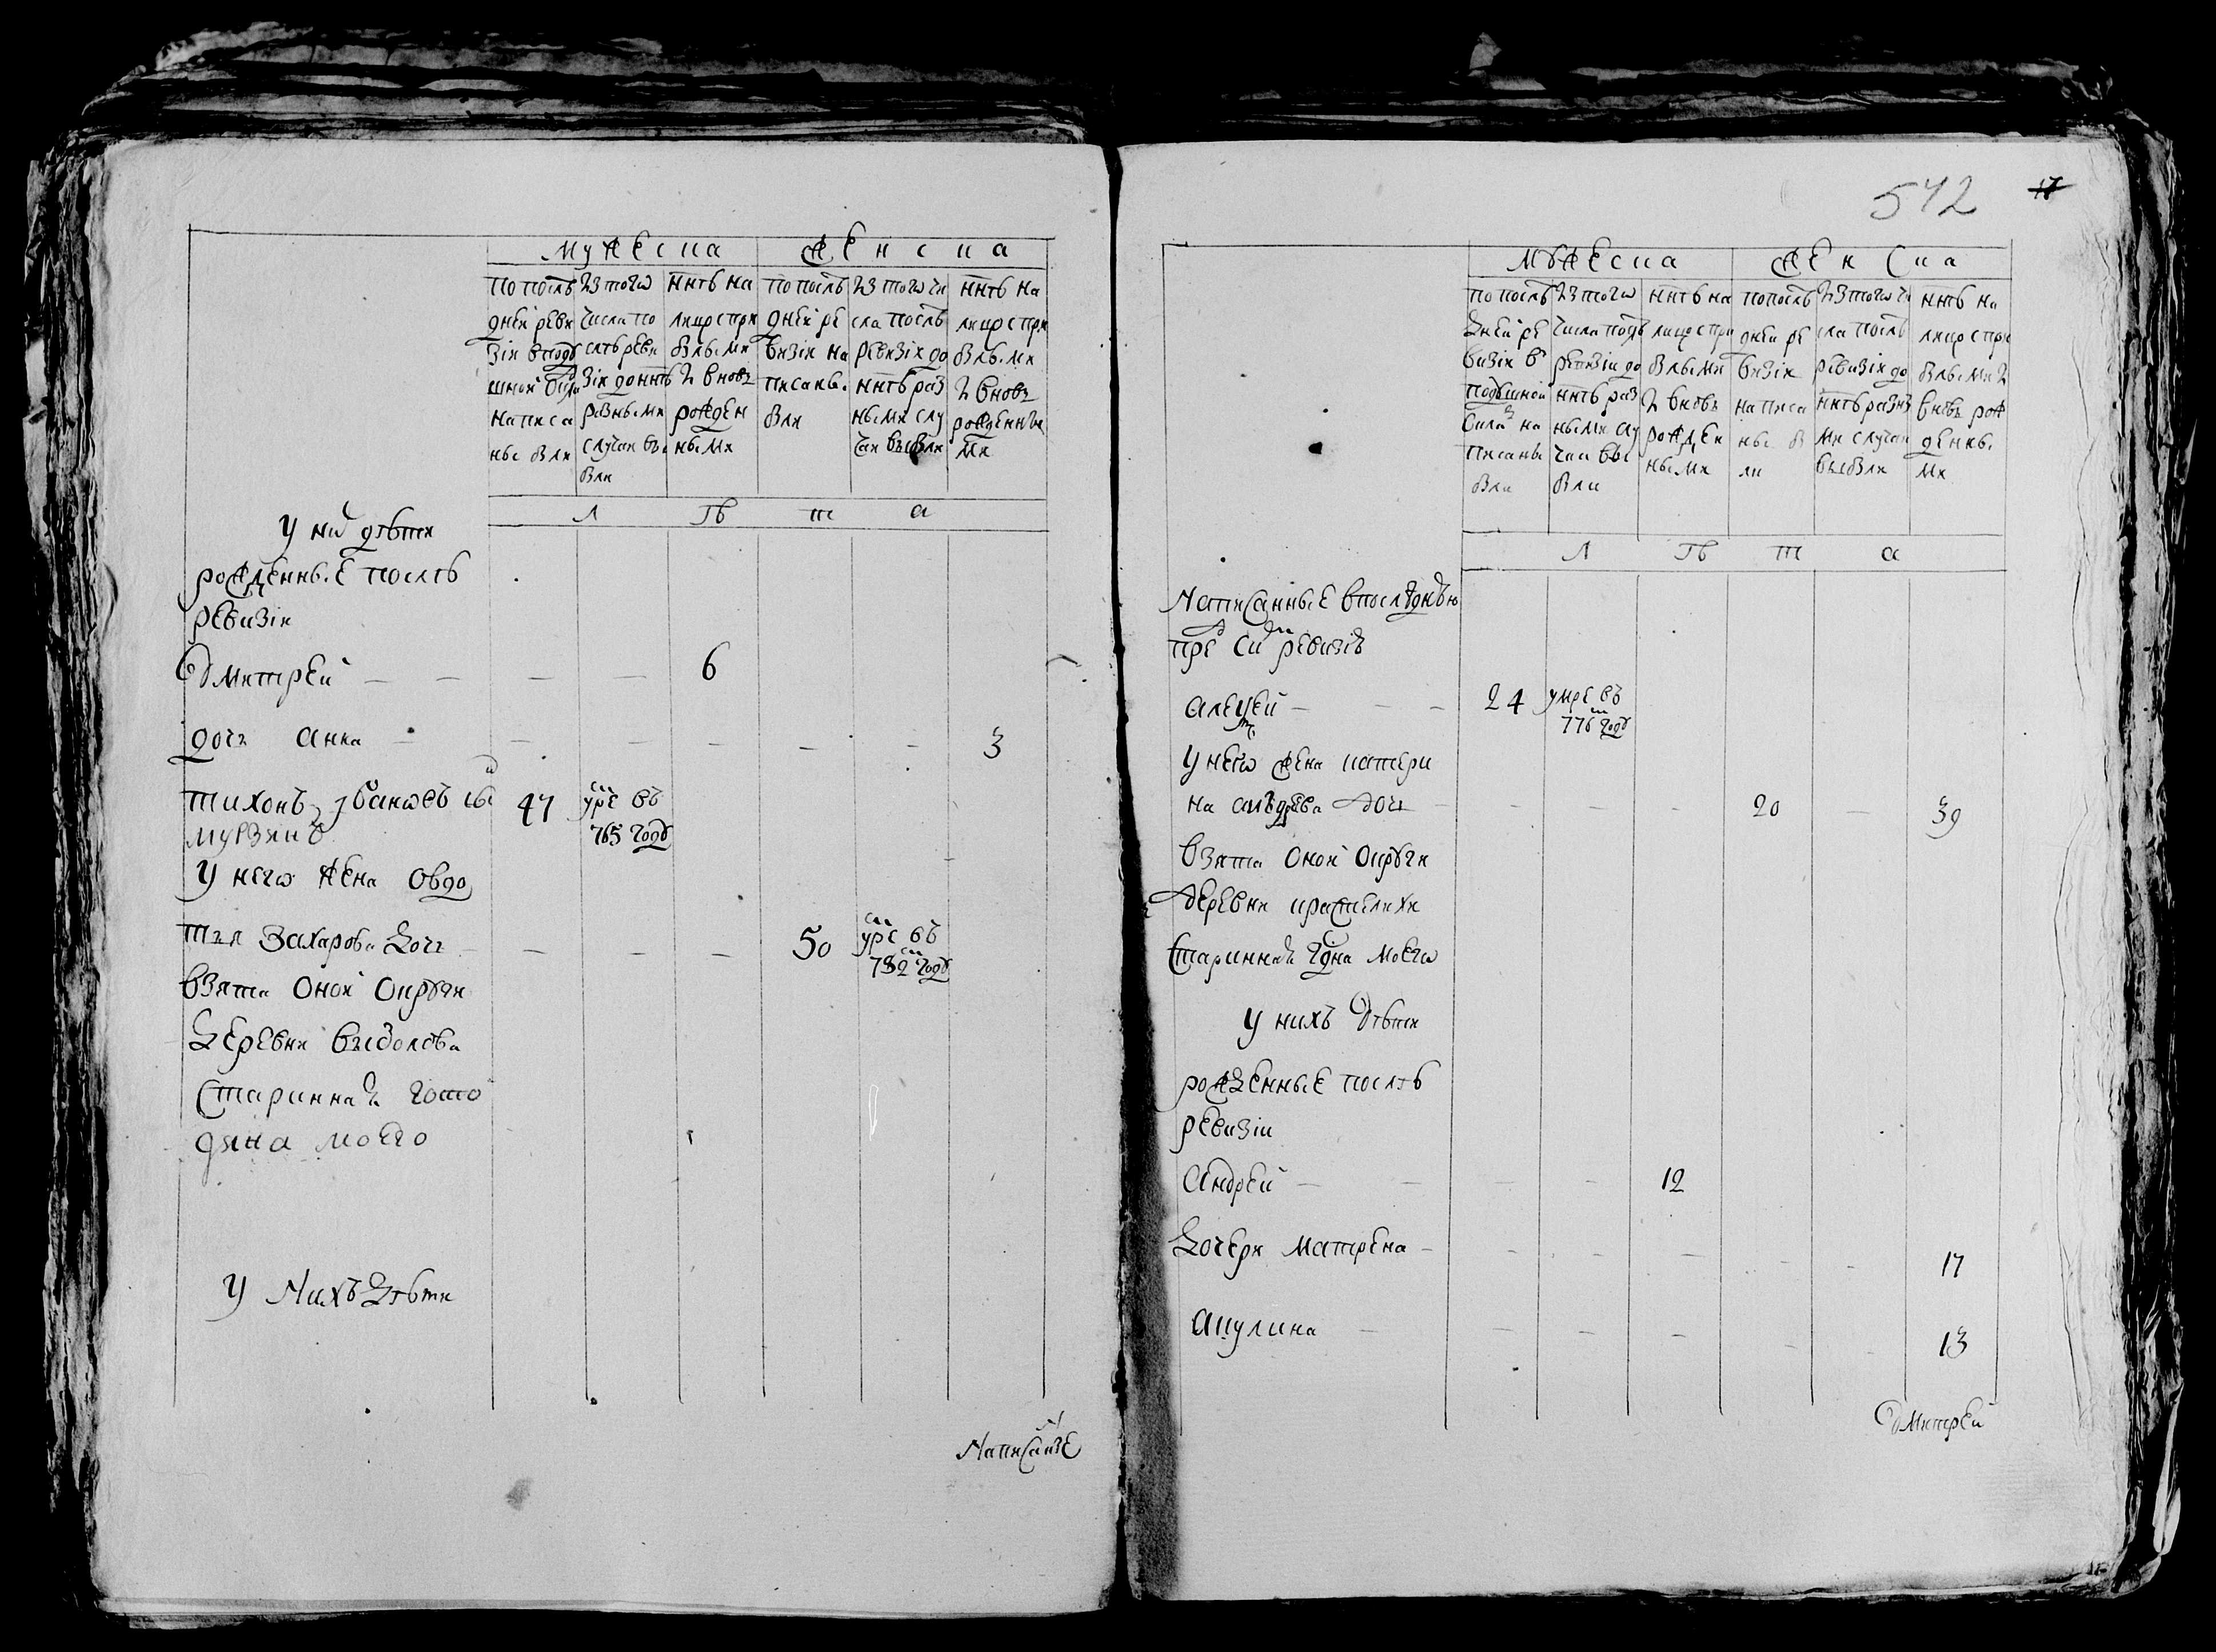 мужеска
женска
по послѣ
дней реви
зiи в поду
шной окла
написа
ны были
из того
числа по
слѣ реви
зiи до ннѣ
разными
случаи вы
были
ннѣ на
лицо с при
былыми
и вновь
рожден
ными
по послѣ
дней ре
визiи на
писаны
были
из того чи
сла послѣ
ревизiи до
ннѣ раз
ными слу
чаи выбыли
ннѣ на
лицо с при
былыми
и вновь
рожденны
ми
л ѣ т а
У ни дѣти
рожденные послѣ
ревизiи
Дмитрей — — — — 6
дочь анна — — — — — — 3
тихонъ ивановъ
47 умре въ
765 году
У него жена овдо
тья захарова дочь — — — 50 умре въ
782 году
взята оной округи
деревни
стариннай госпо
дина моего
У Нихъ дѣти
Написаные
542
17
мужеска
женска
по послѣ
дней ре
визiи в
подушной
написаны
были
из того
числа послѣ
ревизiи до
ннѣ раз
ными слу
чаи вы
были
ннѣ на
лицо с при
былыми
и вновь
рожден
ными
по послѣ
дней ре
визiи
написа
ны бы
ли
из того чи
сла послѣ
ревизiи до
ннѣ разны
ми случаи
выбыли
ннѣ на
лицо с при
былыми и
вновь рож
денны
ми
л ѣ т а
Написанные в послѣднѣю
пре си ревизiю
алексей — — — 24 умре въ
776 году
У него жена катери
на дочь — — — — 20 — 39
взята оной округи
деревни
стариннай гдна моего
У нихъ дѣти
рожденные послѣ
ревизiи
Андрей — — — — 12
Дочери матрена — — — — — — 17
акулина — — — — — — 13
Дмитрей